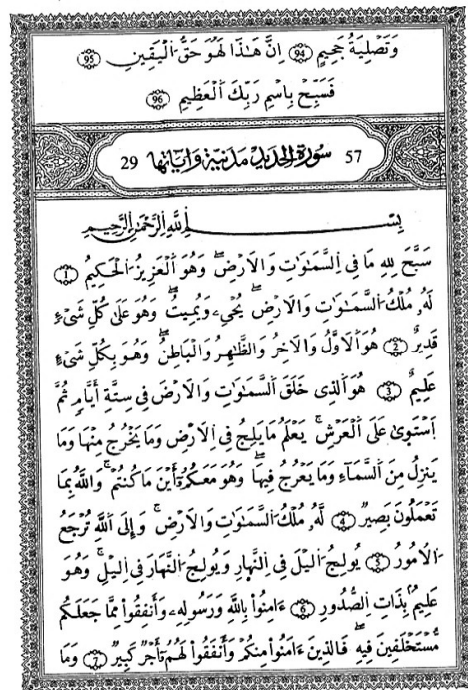 وَتَصْلِيَةُ جَحِيمٍ 94 اِنَّ هَٰذَا لَهُوَ حَقُّ اَ۬لْيَقِينِ 95
فَسَبِّحْ بِاسْمِ رَبِّكَ اَ۬لْعَظِيمِ 96
57 سُورَةُ الحَدِيدِ مَدَنِيَّة وَءَايَاتُهَا 29
بِسْمِ اِ۬للَّهِ اِ۬لرَّحْمَٰنِ اِ۬لرَّحِيمِ
سَبَّحَ لِلهِ مَا فِي اِ۬لسَّمَٰوَٰتِ وَالَارْضِۖ وَهُوَ اَ۬لْعَزِيزُ اُ۬لْحَكِيمُ 1
لَهُۥ مُلْكُ اُ۬لسَّمَٰوَٰتِ وَالَارْضِۖ يُحْيِۦ وَيُمِيتُۖ وَهُوَ عَلَىٰ كُلِّ شَيْءٖ
قَدِيرٌ 2 هُوَ اَ۬لَاوَّلُ وَالَاخِرُ وَالظَّٰهِرُ وَالْبَاطِنُۖ وَهُوَ بِكُلِّ شَيْءٍ
عَلِيمٌ 3 هُوَ اَ۬لذِي خَلَقَ اَ۬لسَّمَٰوَٰتِ وَالَارْضَ فِي سِتَّةِ أَيَّامٖ ثُمَّ
اَ۪سْتَوَىٰ عَلَى اَ۬لْعَرْشِۖ يَعْلَمُ مَا يَلِجُ فِي اِ۬لَارْضِ وَمَا يَخْرُجُ مِنْهَا وَمَا
يَنزِلُ مِنَ اَ۬لسَّمَآءِ وَمَا يَعْرُجُ فِيهَاۖ وَهُوَ مَعَكُمُۥٓ أَيْنَ مَا كُنتُمْۖ وَاللَّهُ بِمَا
تَعْمَلُونَ بَصِيرٌ 4 لَّهُۥ مُلْكُ اُ۬لسَّمَٰوَٰتِ وَالَارْضِۖ وَإِلَى اَ۬للَّهِ تُرْجَعُ
اُ۬لُامُورُ 5 يُولِجُ اُ۬ليْلَ فِي اِ۬لنَّهَارِ وَيُولِجُ اُ۬لنَّهَارَ فِي اِ۬ليْلِۖ وَهُوَ
عَلِيمُۢ بِذَاتِ اِ۬لصُّدُورِ 6 ءَامِنُواْ بِاللَّهِ وَرَسُولِهِۦ وَأَنفِقُواْ مِمَّا جَعَلَكُم
مُّسْتَخْلَفِينَ فِيهِۖ فَالذِينَ ءَامَنُواْ مِنكُمْ وَأَنفَقُواْ لَهُمُۥٓ أَجْرٌ كَبِيرٌ 7 وَمَا